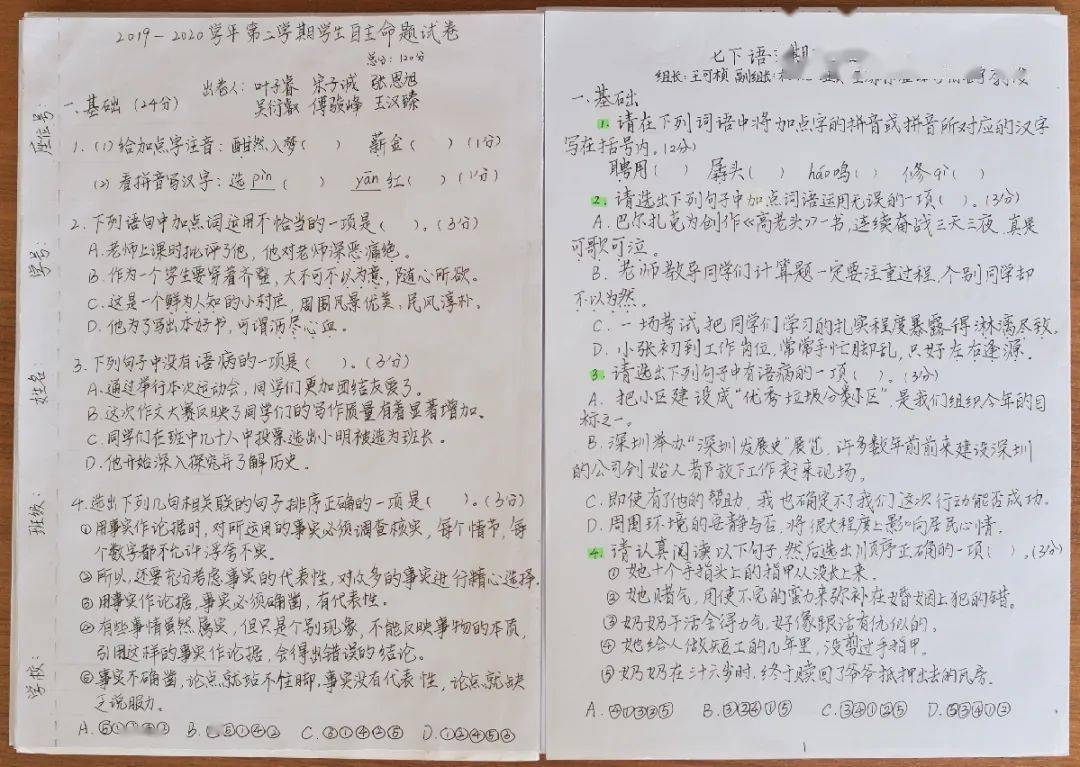 2019-2020学年第二学期学生自主命题试卷
总分：120分
出卷人：叶子睿 宋子诚 张恩旭
吴衍 傅骏峰 王汉臻
一、基础（24分）
1.(1)给加点字注音：酣然入梦（ ） 薪金（ ）(1分)
(2)看拼音写汉字：选pin（ ） yān红（ ）(1分)
2.下列语句中加点词运用不恰当的一项是（ ）。(3分)
A.老师上课时批评了他，他对老师深恶痛绝。
B.作为一个学生要穿着齐整，大不可不以为意，随心所欲。
C.这是一个鲜为人知的小村庄，周围风景优美，民风淳朴。
D.他为了写出本好书，可谓沥尽心血。
3.下列句子中没有语病的一项是（ ）。(3分)
A.通过举行本次运动会，同学们更加团结友爱了。
B.这次作文大赛反映了同学们的写作质量有着显著增加。
C.同学们在班中几十人中投票选出小明被选为班长。
D.他开始深入探究并了解历史。
4.选出下列几句相关联的句子排序正确的一项是（ ）。(3分)
①用事实作论据时，对所运用的事实必须调查核实，每个情节，每
个数字都不允许浮夸不实。
②所以，还要充分考虑事实的代表性，对众多的事实进行精心选择.
③用事实作论据，事实必须确凿，有代表性。
④有些事情虽然属实，但只是个别现象，不能反映事物的本质，
引用这样的事实作论据，会得出错误的结论。
⑤事实不确凿，论点就站不住脚，事实没有代表性，论点就缺
乏说服力。
A. B. C.③①④②⑤ D.①②④⑤③
座位号：
学号：
姓名：
班级：
学校：
七下语 期
组长：王可桢 副组长
一、基础
1.请在下列词语中将加点字的拼音或拼音所对应的汉字
写在括号内。(2分)
聘用（ ） 孱头（ ） háo鸣（ ） 修qì（ ）
2.请选出下列句子中加点词语运用无误的一项（ ）。(3分)
A.巴尔扎克为创作《高老头》一书，连续奋战三天三夜，真是
可歌可泣。
B.老师教导同学们计算题一定要注重过程，个别同学却
不以为然。
C.一场考试把同学们学习的扎实程度暴露得淋漓尽致。
D.小张初到工作岗位，常常手忙脚乱，只好左右逢源.
3.请选出下列句子中有语病的一项（ ）。(3分)
A.把小区建设成“优秀垃圾分类小区”，是我们组织今年的目
标之一。
B.深圳举办“深圳发展史”展览，许多数年前前来建设深圳
的公司创始人都放下工作赶来现场。
C.即使有了他的帮助，我也确定不了我们这次行动能否成功.
D.周围环境的安静与否，将很大程度上影响居民心情.
4.请认真阅读以下句子，然后选出顺序正确的一项（ ）。(3分)
①她十个手指头上的指甲从没长上来.
②她赌气，用使不完的蛮力来弥补在婚姻上犯的错。
③奶奶干活会得力气，好像跟活有仇似的。
④她给人做短工的几年里，没剪过手指甲.
⑤奶奶在三十六岁时，终于赎回了爷爷抵押出去的瓦房.
A. B.⑤③④①⑤ C.③④①②⑤ D.⑤③④①②
1